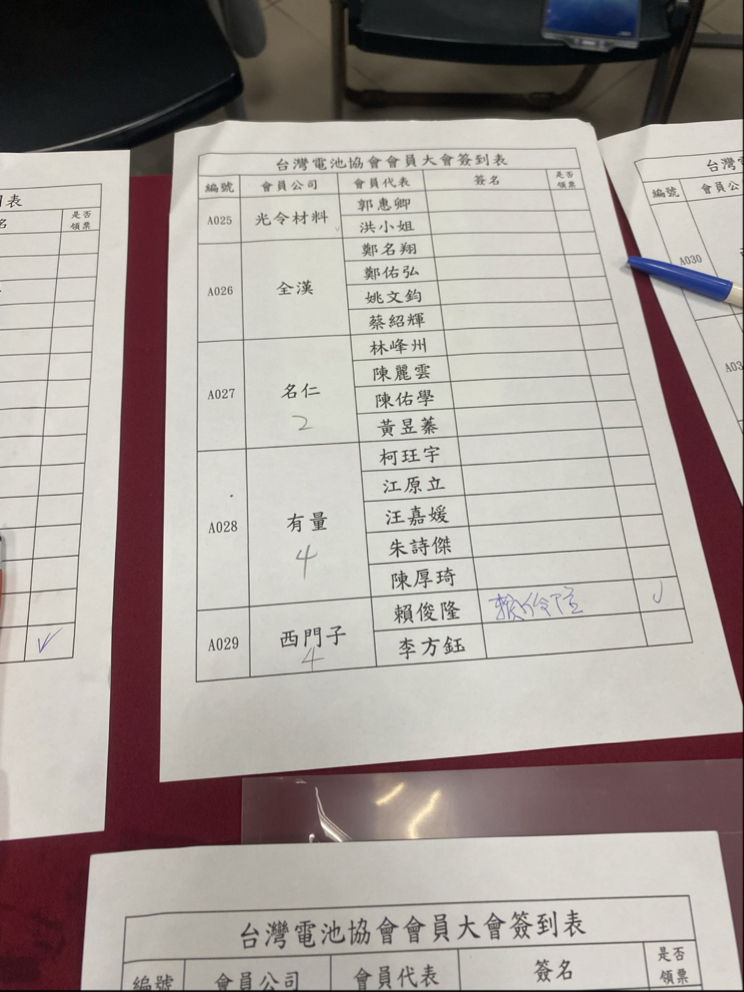 台灣電池協會會員大會簽到表
編號 會員公司 會員代表 簽名 是否領票
A025 光令材料 郭惠卿
洪小姐
A026 全漢 鄭名翔
鄭佑弘
姚文鈞
蔡紹輝
A027 名仁 2 林峰州
陳麗雲
陳佑學
黃昱蓁
A028 有量 4 柯玨宇
江原立
汪嘉媛
朱詩傑
陳厚琦
A029 西門子 4 賴俊隆 賴俊隆 ✓
李方鈺
到表
名 是否領票
✓
台灣電
編號 會員公
A030
台灣電池協會會員大會簽到表
編號 會員公司 會員代表 簽名 是否領票